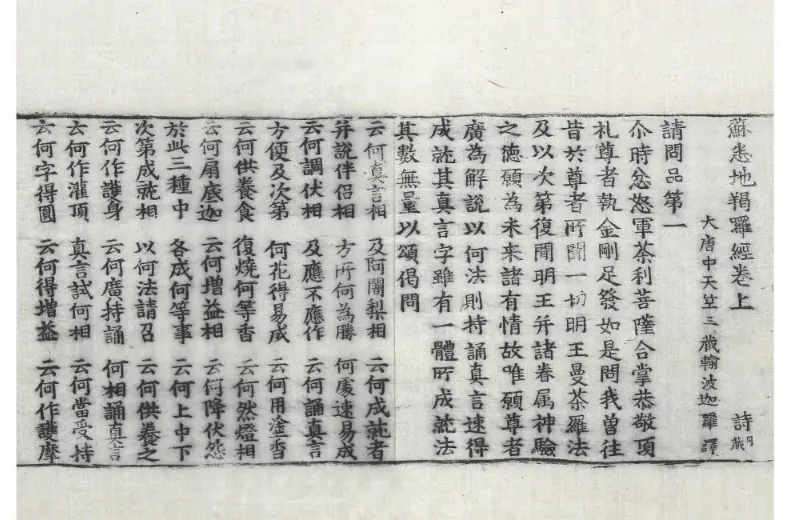 蘇悉地羯羅經卷上 詩
大唐中天竺三蔵輸波迦羅譯
請問品第一
尒時忿怒軍荼利菩薩合掌恭敬頂
礼尊者執金剛足發如是問我曽往
昔於尊者所聞一切明王曼荼羅法
及以次第復聞明王并諸眷属神驗
之德願為未来諸有情故唯願尊者
廣為解說以何法則持誦真言速得
成就其真言字雖有一體所成就法
其數無量以頌偈問
云何真言相 及阿闍梨相 云何成就者
并說伴侶相 方所何為勝 何處速易成
云何調伏相 及應不應作 云何誦真言
方便及次第 何花得易成 云何用塗香
云何供養食 復燒何等香 云何然燈相
云何扇底迦 云何增益相 云何降伏怨
於此三種中 各成何等事 云何上中下
次第成就相 以何法請召 云何供養之
云何作護身 云何廣持誦 何相誦真言
云何作灌頂 真言試何相 云何當受持
云何字得圓 云何得增益 云何作護摩